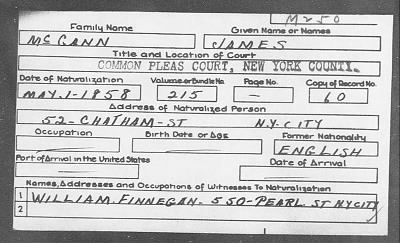 M250
Family Name Given Name or Names
McGANN JAMES
Title and Location of Court
COMMON PLEAS COURT, NEW YORK COUNTY.
Date of Naturalization Volume or Bundle No. Page No. Copy of Record No.
MAY-1-1858 215 — 60
Address of Naturalized Person
52-CHATHAM-ST N.Y-CITY
Occupation Birth Date or Age Former Nationality
ENGLISH
Port of Arrival in the United States Date of Arrival
Names, Addresses and Occupations of Witnesses To Naturalization
1 WILLIAM. FINNEGAN- 550-PEARL ST N.Y CITY
2